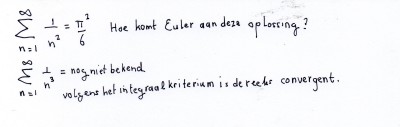 ∞
∑ 1/n² = π²/6 Hoe komt Euler aan deze oplossing?
n=1
∞
∑ 1/n³ = nog niet bekend.
n=1 volgens het integraalkriterium is de reeks convergent.